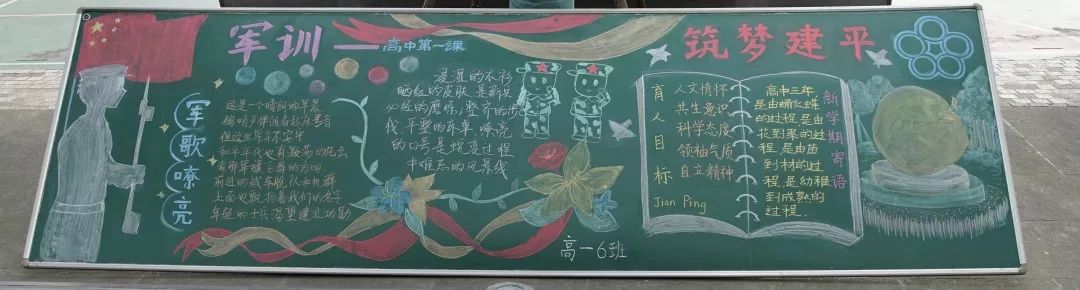 军训——高中第一课
军歌嘹亮
这是一个晴朗的早晨
鸽哨声伴随着起床号音
但这世界并不安宁
和平年代也有激荡的风云
看那军旗飞舞的方向
前进的战车舰队和机群
上面也飘扬着我们的名字
年轻的士兵渴望建立功勋
浸湿的衣衫
晒红的皮肤 是新兵
必经的磨炼,整齐的步
伐,平整的床单,嘹亮
的口号是蜕变过程
中难忘的风景线
高一6班
筑梦建平
育人目标
人文情怀
共生意识
科学态度
领袖气质
自立精神
Jian Ping
新学期寄语
高中三年,
是由蛹化蝶
的过程,是由
花到果的过
程,是由苗
到材的过
程,是幼稚
到成熟的
过程.